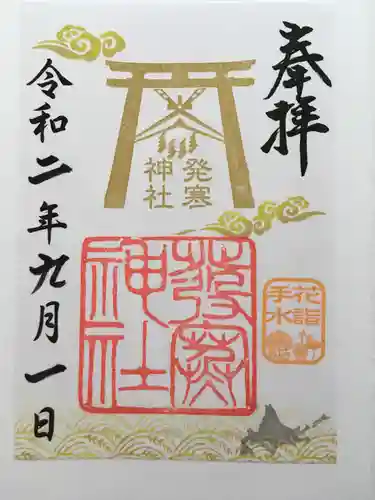 奉拝
発寒
神社
発寒
神社
花詣
手水
令和二年九月一日